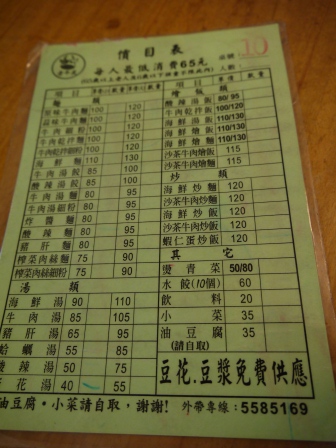 價目表
每人最低消費65元
10
項目
麵類
100 120
100 120
牛肉 100
海鮮麵 110 130
牛肉湯餃 85 100
酸辣湯餃 80 100
牛肉湯麵 80 95
牛肉湯細粉 80 95
炸醬麵 80 95
酸辣麵 80 95
豬肝麵 80 95
榨菜肉絲麵 75 90
榨菜肉絲細粉 75 90
湯類
海鮮湯 90 110
牛肉湯 85 105
豬肝湯 65 95
蛤蠣湯 55 85
酸辣湯 50 75
蛋花湯 40 55
項目 單價 數量
燴飯類
酸辣燴飯 80/95
牛肉乾拌飯 100/120
海鮮燴飯 110/130
海鮮燴麵 110/130
沙茶牛肉燴飯 115
沙茶牛肉燴麵 115
炒類
海鮮炒麵 120
沙茶牛肉炒麵 120
海鮮炒飯 120
沙茶牛肉炒飯 120
蝦仁蛋炒飯 120
其它
燙青菜 50/80
水餃(10個) 60
飲料 20
小菜 35
油豆腐 35
(請自取)
豆花.豆漿免費供應
油豆腐·小菜請自取,謝謝! 外帶專線:5585169